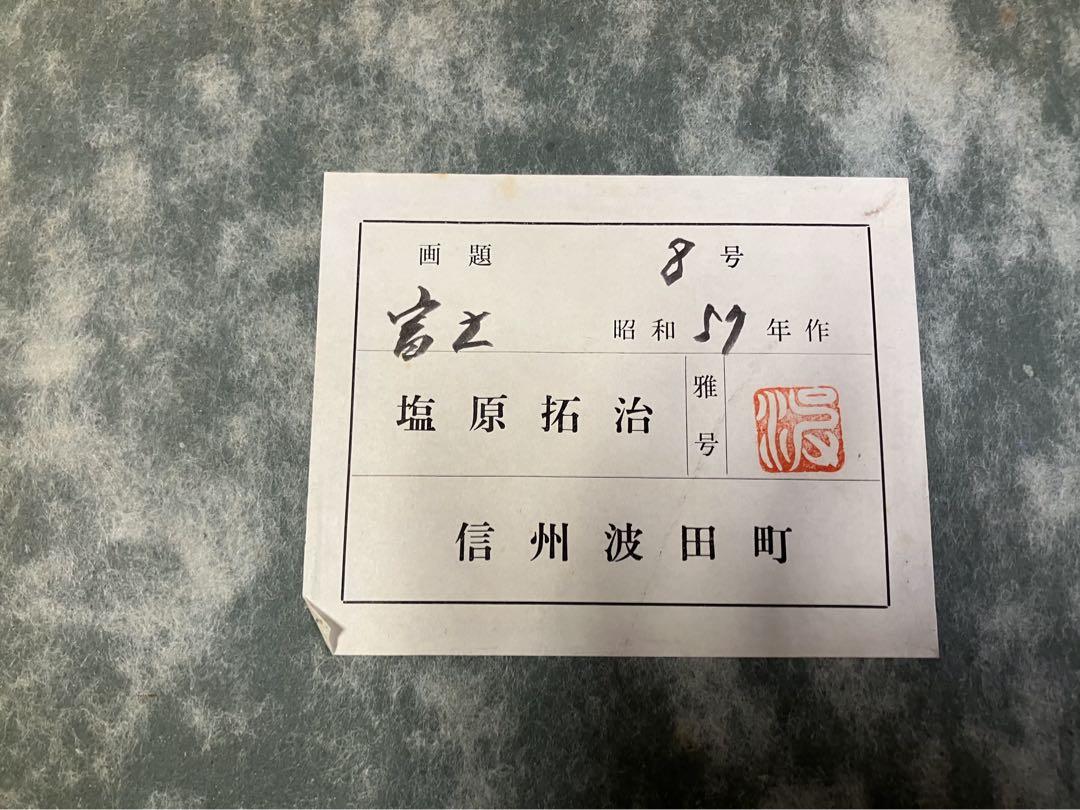 画題 8号
富士 昭和57年作
塩原拓治 雅号
信州波田町